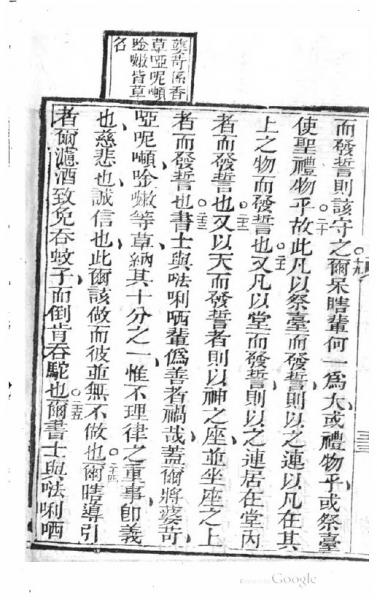 薆荷係香
草啞呢嚬
唫嗽皆草
名
而發誓則該守之十九爾呆瞎輩何一爲大或禮物乎或祭臺
使聖禮物乎二十故此凡以祭臺而發誓則以之連以凡在其
上之物而發誓也二一又凡以堂而發誓則以之連居在堂內
者而發誓也二二又以天而發誓者則以神之座並坐座之上
者而發誓也二三書士與㗫唎哂輩僞善者禍哉蓋爾將薆荷
啞呢嚬唫嗽等草納其十分之一惟不理律之重事卽義
也慈悲也誠信也此爾該做而彼並無不做也二四爾瞎導引
者爾濾酒致免吞蚊子而倒肯吞駝也二五爾書士與㗫唎哂
Google